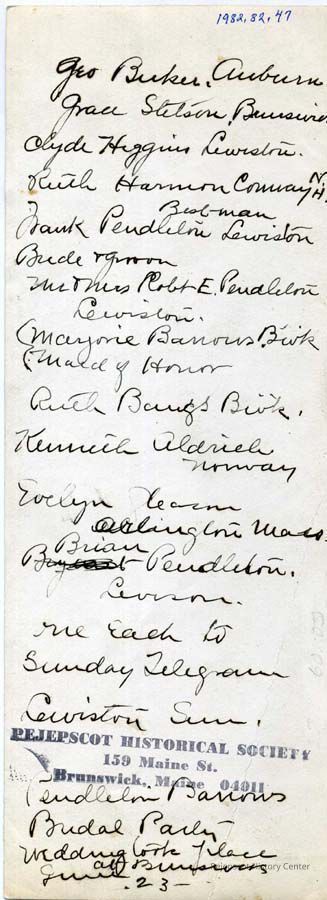 1982.82.47
Geo Burker. Auburn
Grace Stetson, Brunswick
Clyde Higgins Lewiston.
Ruth Harmon Conway N.H.
Best-man
Frank Pendleton Lewiston
Bride & groom
Mr & Mrs Robt E. Pendleton
Lewiston.
(Marjorie Barrows Birk
(Maid of Honor
Ruth Bangs Birk.
Kenneth Aldrich
Norway
Evelyn
Arlington Mass.
Brian
Pendleton.
one Each to
Sunday Telegram
Lewiston Sun.
PEJEPSCOT HISTORICAL SOCIETY
159 Maine St.
Brunswick, Maine 04011
Pendleton Barrows
Bridal Party
Wedding took place
at Brunswick
June 23-
History Center